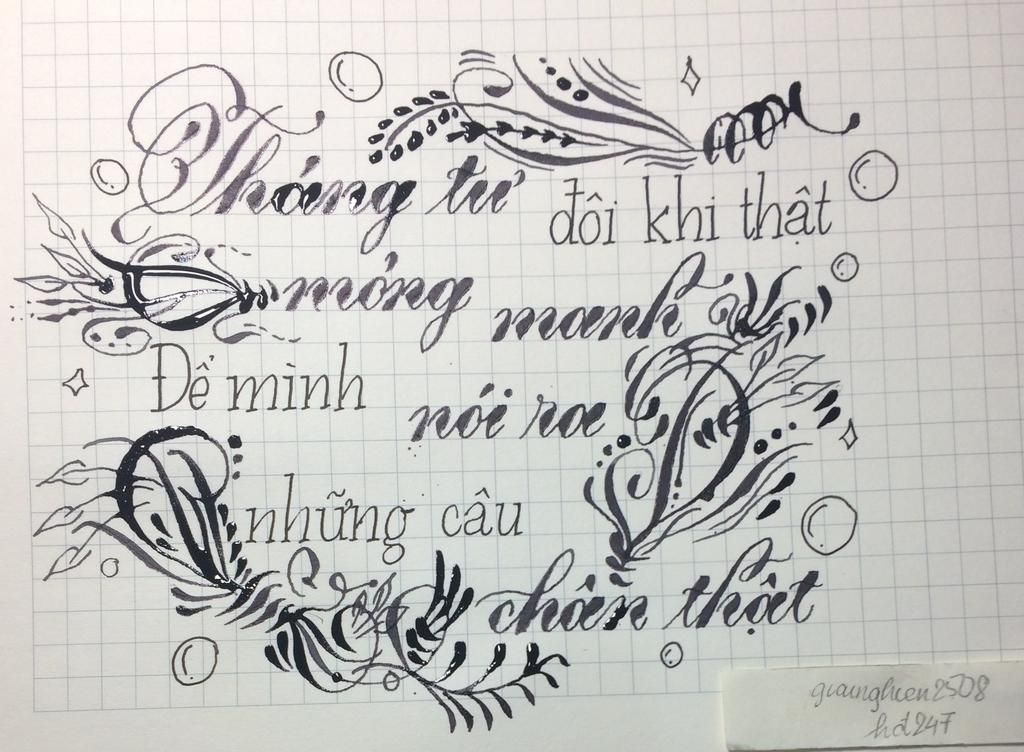 Tháng tư đôi khi thật
mỏng manh
Để mình nói ra
những câu
chân thật
hd247